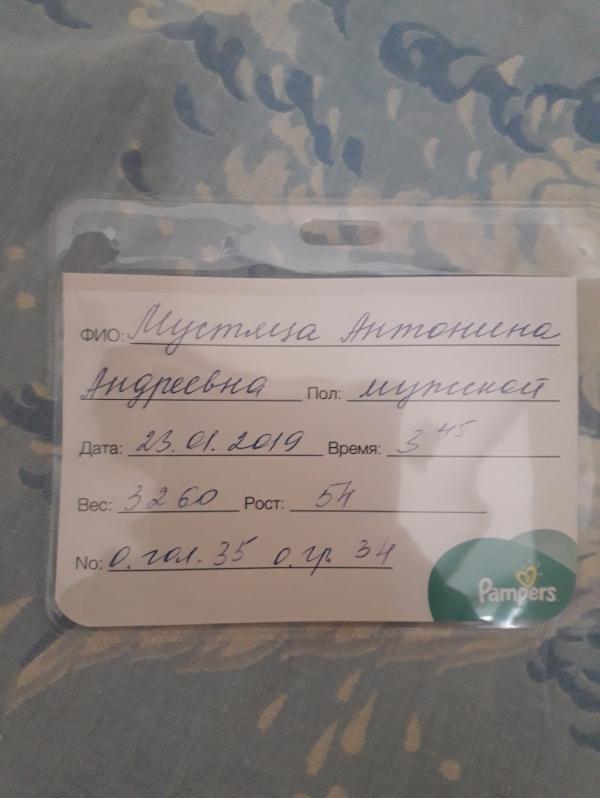 ФИО: Мустяца Антонина
Андреевна Пол: мужской
Дата: 23.01.2019 Время: 3 45
Вес: 3260 Рост: 54
No: О. гол. 35 О. гр. 34
Pampers